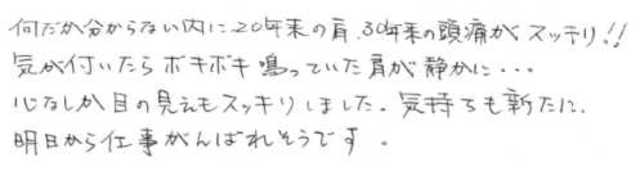 何だか分からない内に20年来の肩、30年来の頭痛がスッキリ!!
気が付いたらボキボキ鳴っていた肩が静かに・・・
心なしか目の見えもスッキリしました。気持ちも新たに、
明日から仕事がんばれそうです。